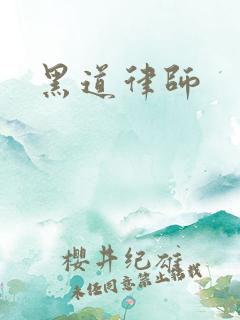 黑道律師
櫻井纪雄
未经同意禁止搭載